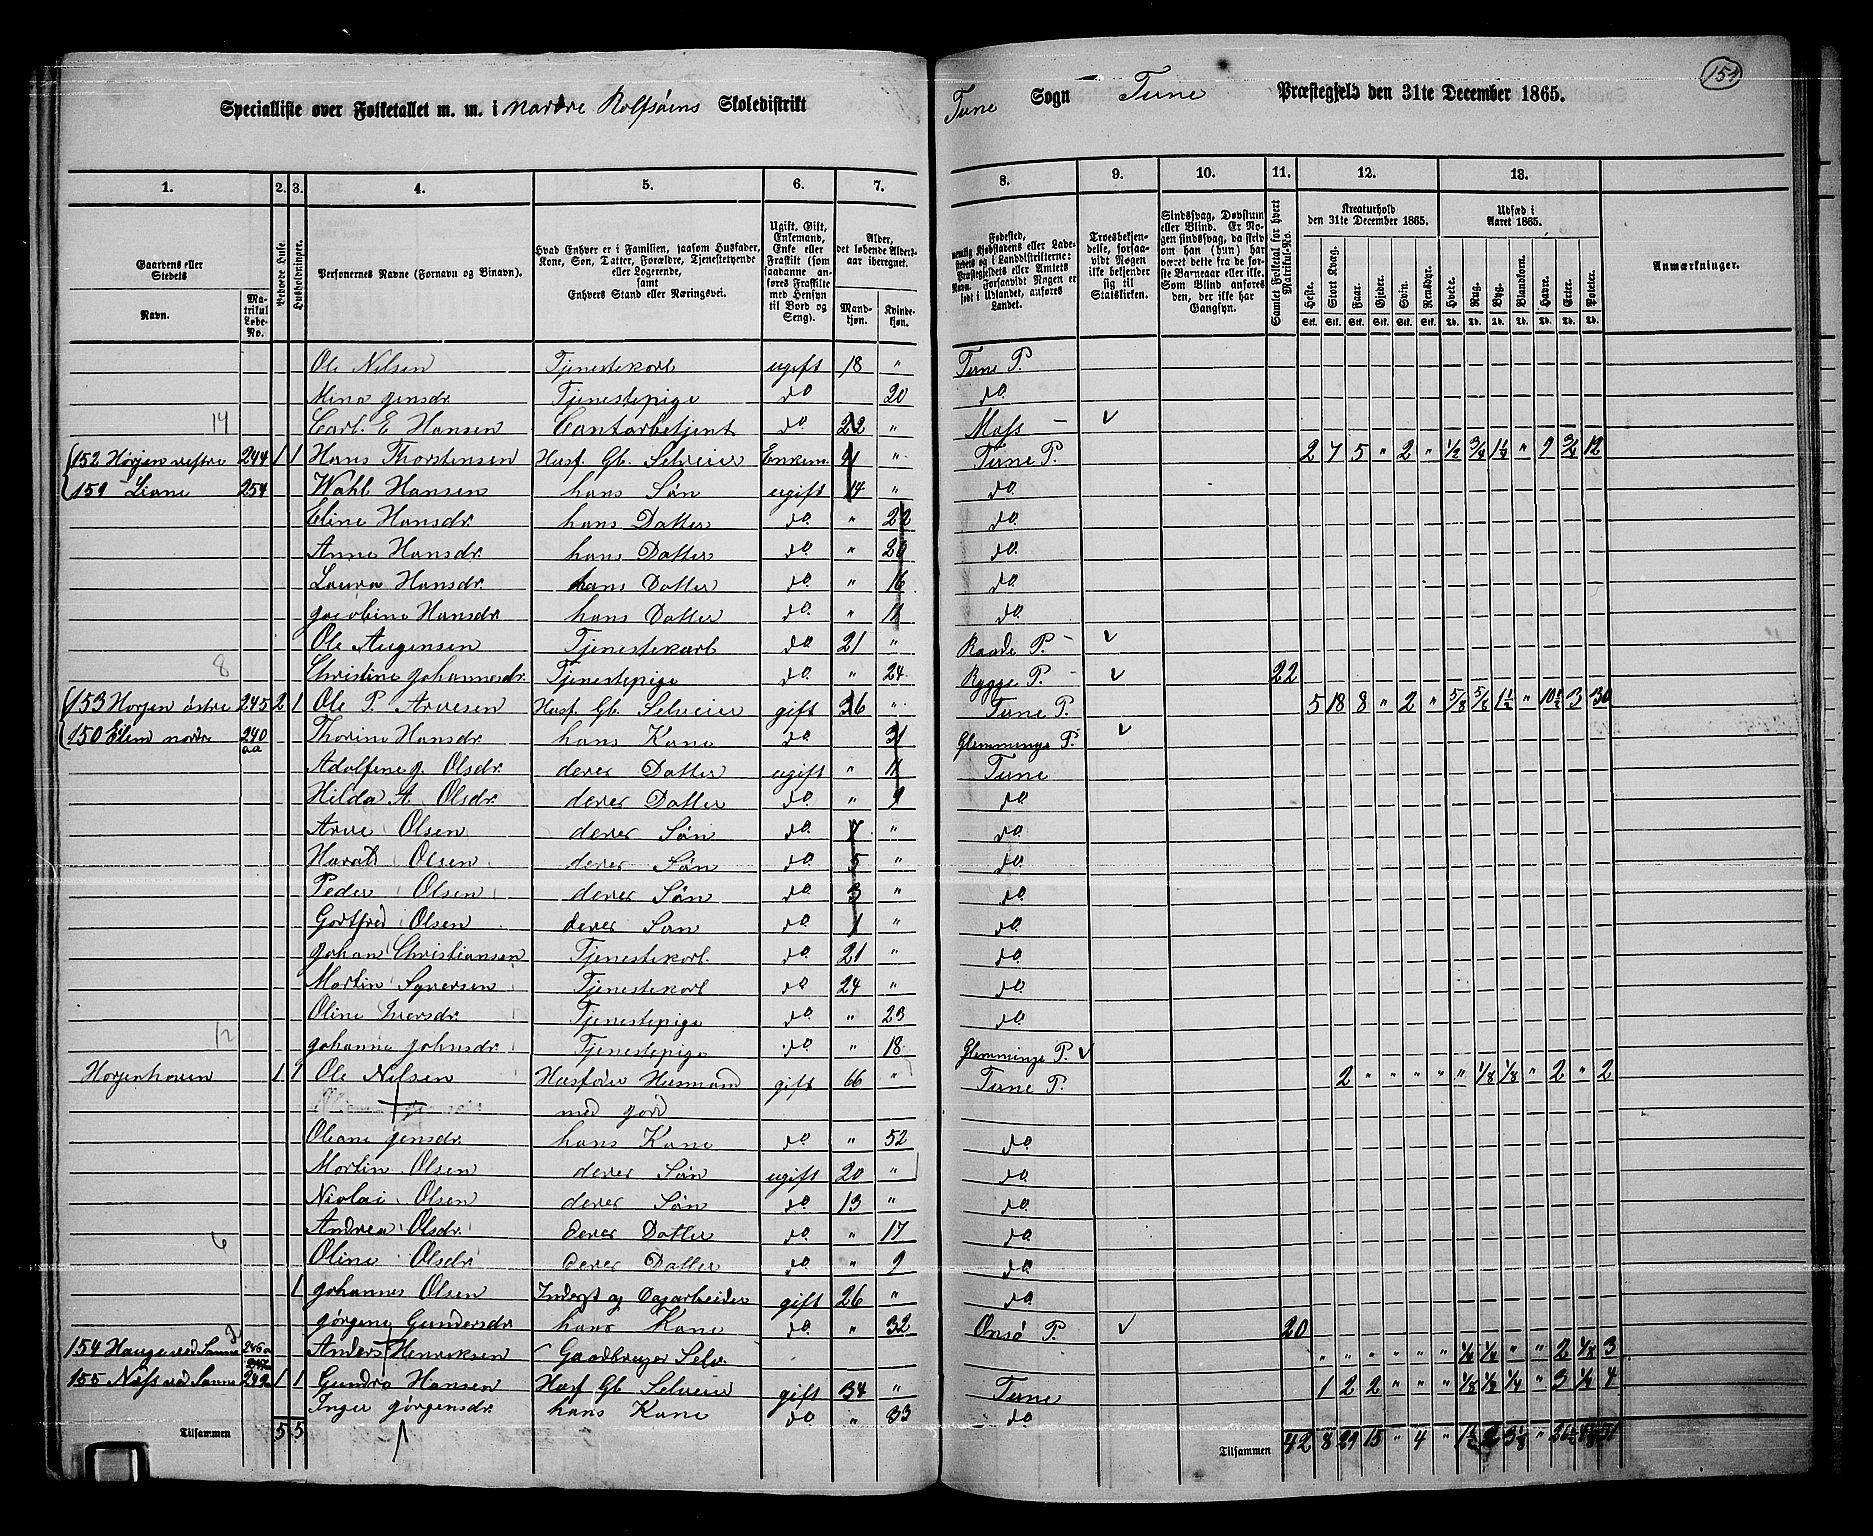 154
Specialliste over Folketallet m. m. i Nordre Rolfsøens Skoledistrikt Tune Sogn Tune Præstegjeld den 31te December 1865.
1. 2. 3. 4. 5. 6. 7. 8. 9. 10. 11. 12. 13.
Gaardens eller Stedets Navn. Matrikul Løbe-No. Beboede Huse. Husholdninger. Personernes Navne (Fornavn og Binavn). Hvad Enhver er i Familien, saasom Husfader, Kone, Søn, Datter, Forældre, Tjenestetyende eller Logerende, samt Enhvers Stand eller Næringsvei. Ugift, Gift, Enkemand, Enke eller Fraskilt (som saadanne anføres Fraskilte med Hensyn til Bord og Seng). Alder, det løbende Aldersaar iberegnet. Mandkjøn. Kvindekjøn. Fødested, Troesbekjendelse, forsaavidt Nogen ikke bekjender sig til Statskirken. Sindssvag, Døvstum eller Blind. Samlet Folketal for hvert Matrikul-No. Kreaturhold den 31te December 1865. Heste. Stort Kvæg. Faar. Gjeder. Svin. Rensdyr. Udsæd i Aaret 1865. Hvede. Rug. Byg. Blandkorn. Havre. Erter. Poteter. Anmærkninger.
Ole Nilsen Tjenestekarl ugift 18 " Tune P.
Mina Jensdr. Tjenestepige do 20 do.
14 Carl. E Hansen Contorbetjent do. 22 " Moss - v
152 Horjen vestre 244 1 1 Hans Thorstensen Husf. Gb. Selveier Enkem. 41 " Tune P. 2 7 5 " 2 " 1/2 3/4 1 1/2 " 9 3/4 12
159 Liane 254 Wahl Hansen hans Søn ugift 14 " do.
Eline Hansdr. hans Datter do. " 22 do.
Anne Hansdr. hans Datter do. " 20 do.
Laura Hansdr. hans Datter do. " 16 do.
Jacobine Hansdr. hans Datter do. " 11 do.
Ole Augensen Tjenestekarl do. 21 " Raade P. - v
8 Christine Johannesdr. Tjenestepige do. " 24 Rygge P. - v 22
153 Horjen østre 245 2 1 Ole P. Arvesen Husf. Gb. Selveier gift 36 " Tune P. 5 18 8 " 2 " 5/8 5/8 1 1/2 " 10 1/2 3 30
150 Elim nordre 240 aa Thorine Hansdr. hans Kone do. 31 Glemminge P. v
Adolfine J. Olsdr. deres Datter ugift " 11 Tune
Hilda A. Olsdr. deres Datter do. " 9 do.
Arve Olsen deres Søn do. 7 " do.
Harald Olsen deres Søn do. 5 " do.
Peder Olsen deres Søn do. 3 " do.
Gottfred Olsen deres Søn do. 1 " do.
Johan Christiansen Tjenestekarl. do. 21 " do.
Martin Syversen Tjenestekarl do 24 " do.
Oline Iversdr. Tjenestepige do. " 23 do.
12 Johanne Johnsdr. Tjenestepige do. " 18 Glemminge P. v
Horjenhaven 1 1 Ole Nilsen Husfader Husmand gift 66 " Tune P. 2 " " " " " 1/8 1/8 " 2 " 2
med jord
Oleane Jensdr. hans Kone do. " 52 do.
Martin Olsen deres Søn ugift 20 " do.
Nicolai Olsen deres Søn do. 13 " do.
Andrea Olsdr. deres Datter do. " 17 do.
6 Oline Olsdr. deres Datter do. " 9 do.
1 Johannes Olsen Inderst og Dagarbeider gift 26 " do.
2 Jørgine Gundersdr. hans Kone do. " 32 Onsø P. v 20
154 Hauge ved Sanne 246a 247 Anders Henriksen Gaardbruger Selv. " " " " " " 1/4 1/4 " " 2 1/8 3
155 Næs ved Sanne 249a 1 1 Gundro Hansen Husf. Gb. Selveier gift 34 " Tune 1 2 2 " " " 1/8 1/8 1/4 " 3 1/4 4
Inger Jørgensdr. hans Kone do " 33 do.
Tilsammen 5 5 Tilsammen 42 8 29 15 " 4 " 1 1/2 2 3 1/8 " 26 1/2 51